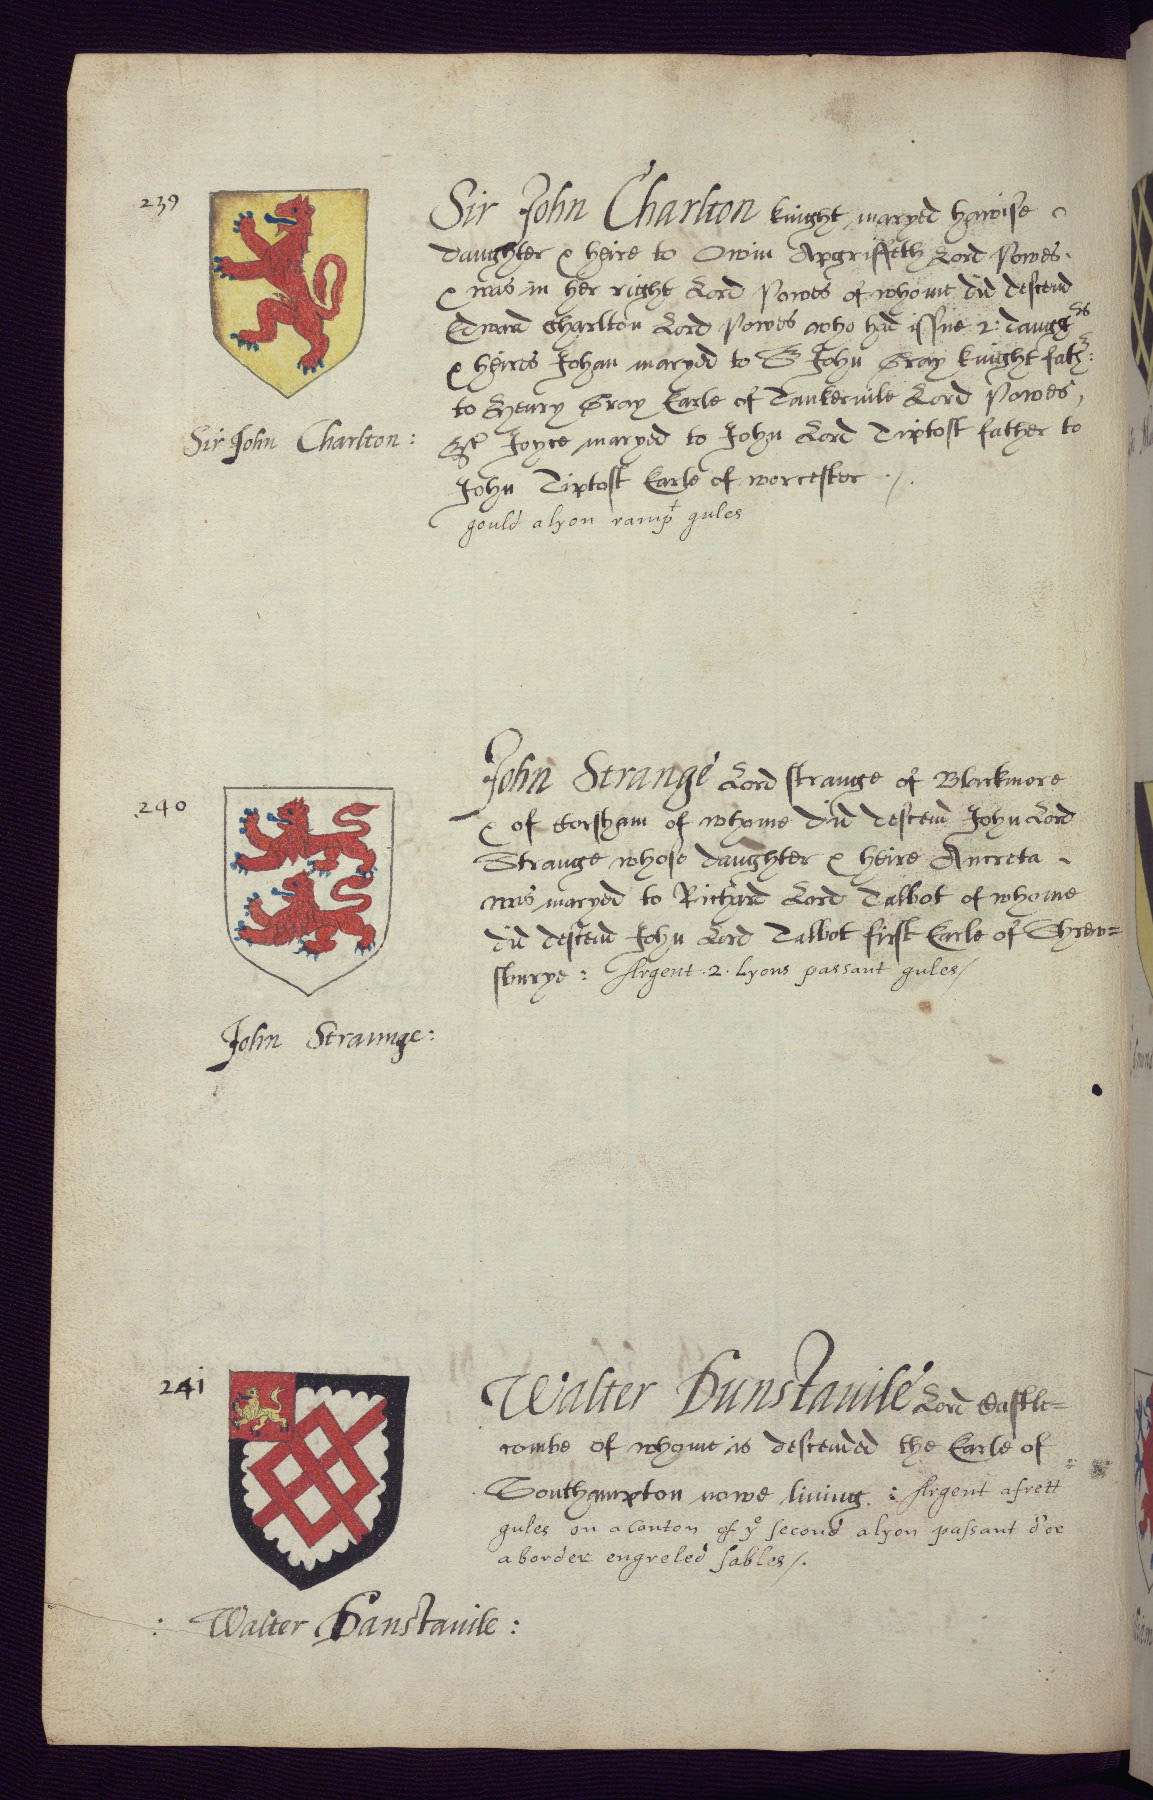 239
Sir John Charlton knight maryed hawise
daughter & heire to Owin Apgriffeth Lord Powes.
& was in her right Lord Powes of whome did descend
Edward Charlton Lord Powes who had issue 2: daugt^rs
& heires Johan maryed to S^r John Gray knight fath^r:
to Henry Gray Earle of Tankervile Lord Powes,
Joyce maryed to John Lord Tiptoft father to
John Tiptoft Earle of worcester ./.
gould a lyon ramp^t gules
Sir John Charlton:
240
John Strange Lord strange of Blackmore
& of Corsham of whome did descend John Lord
Strange whose daughter & heire Ancreta
was maryed to Richard Lord Talbot of whome
did descend John Lord Talbot first Earle of Shrew=
sburye: Argent .2. lyons passant gules/
John Straunge:
241
Walter Dunstauile Lord Castle=
combe of whome is descended the Earle of
Southampton nowe living. : Argent a frett
gules on a Canton of y^e second a lyon passant d'or
a border engreled sables/.
: Walter Danstauile: